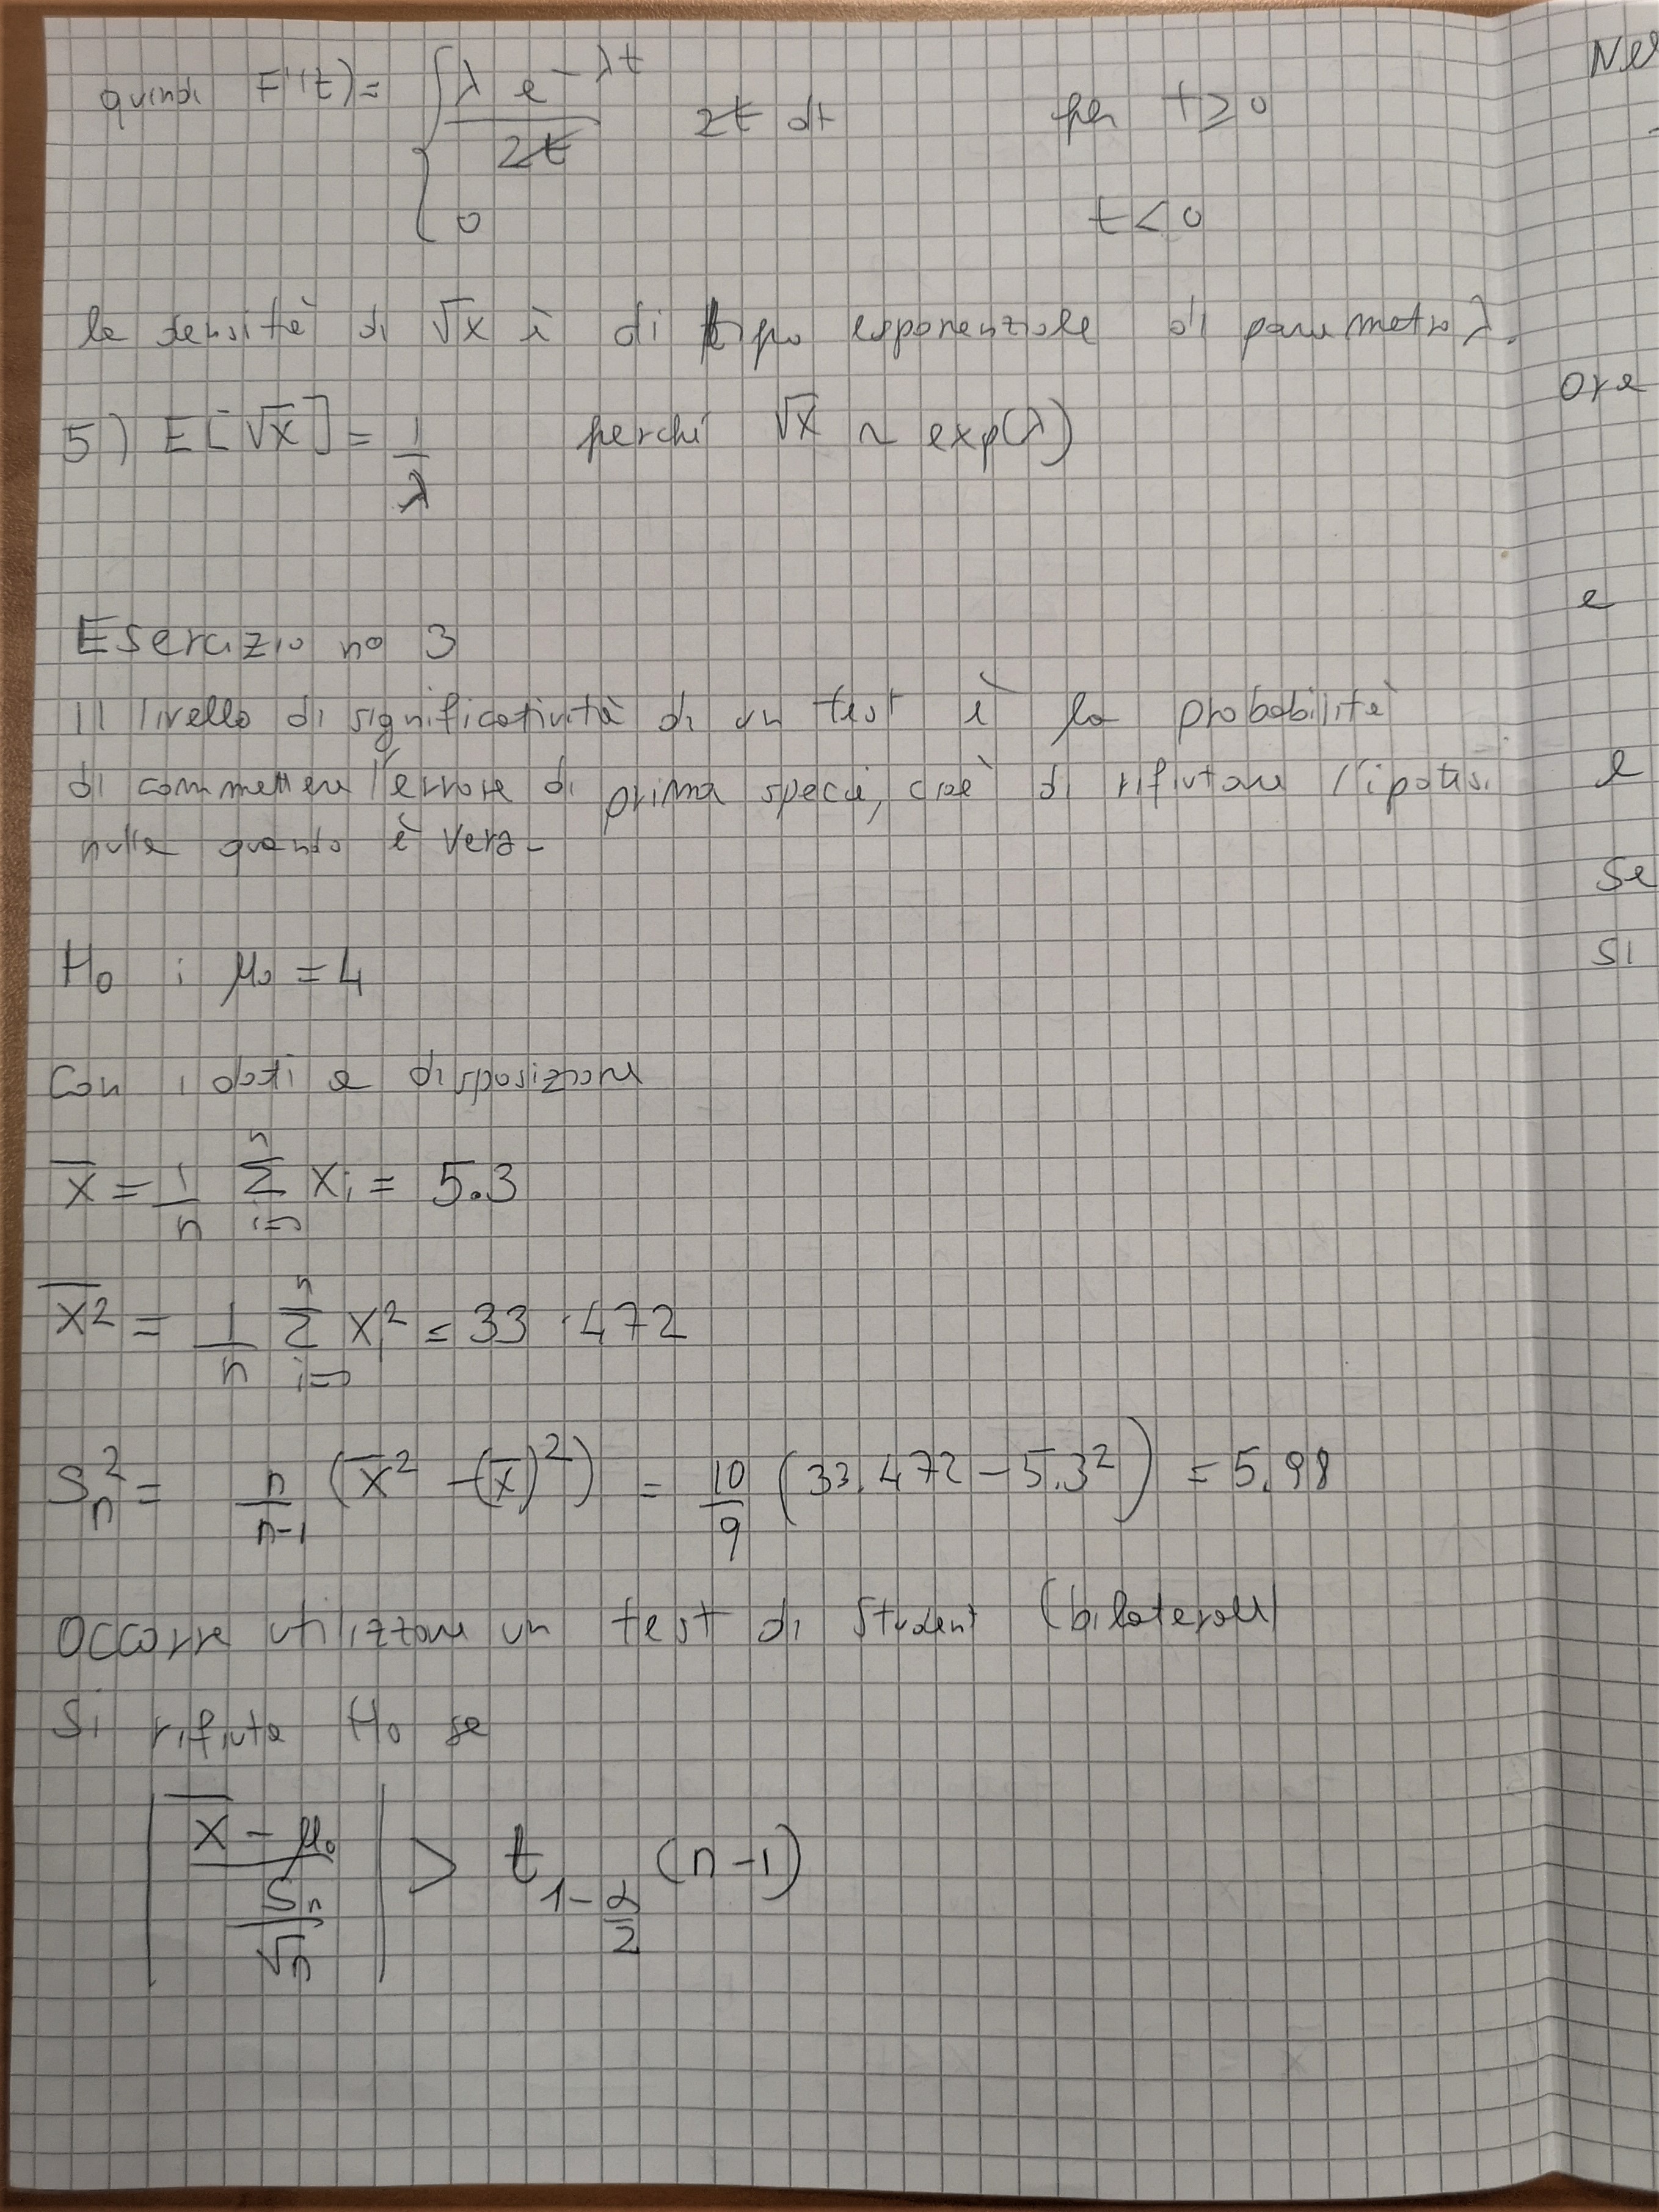 quindi F'(t) = { λ e^-λt / 2t 2t dt per t ≥ 0
0 t < 0
la densità di √x è di tipo esponenziale di parametro λ.
5) E[√x] = 1/λ perché √x ~ exp(λ)
Esercizio n° 3
Il livello di significatività di un test è la probabilità
di commettere l'errore di prima specie, cioè di rifiutare l'ipotesi
nulla quando è vera-
H₀ : μ₀ = 4
Con i dati a disposizione
x̅ = 1/n Σ_{i=0}^n xᵢ = 5.3
x̅² = 1/n Σ_{i=0}^n xᵢ² = 33.472
Sₙ² = n/(n-1) (x̅² - (x̅)²) = 10/9 (33.472 - 5.3²) = 5.98
Occorre utilizzare un test di Student (bilaterale)
Si rifiuta H₀ se
| (x̅ - μ₀) / (Sₙ/√n) | > t_{1-α/2} (n-1)
Ne
ora
e
e
Se
Si